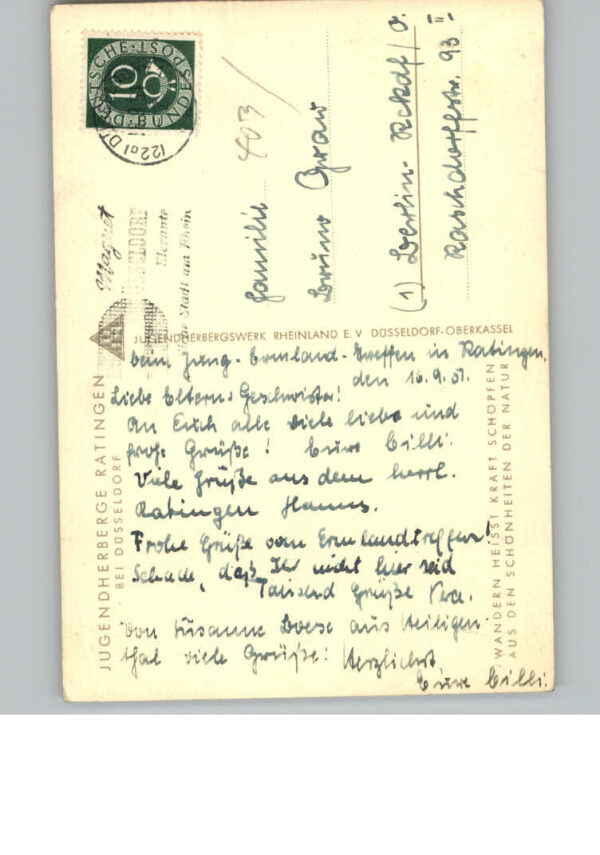 DEUTSCHE BUNDESPOST
10
(22a)
Magnet
DÜSSELDORF
Elegante
Stadt am Rhein
403
Familie
Bruno Graw
(1) Berlin-Rckdf/O.
Raschdorffstr. 93 II
JUGENDHERBERGSWERK RHEINLAND E. V DÜSSELDORF-OBERKASSEL
beim Jung-Ermland-Treffen in Ratingen,
den 16.9.51.
Liebe Eltern u Geschwister!
An Euch alle viele liebe und
frohe Grüße! Eure Cilli.
Viele Grüße aus dem herrl.
Ratingen Hanns.
Frohe Grüße vom Ermlandtreffen!
Schade, daß Ihr nicht hier seid
Tausend Grüße Vera.
Von Susanne Boese aus Heiligen
thal viele Grüße! Herzlichst,
Eure Cilli.
JUGENDHERBERGE RATINGEN
BEI DÜSSELDORF
WANDERN HEISST KRAFT SCHÖPFEN
AUS DEN SCHÖNHEITEN DER NATUR